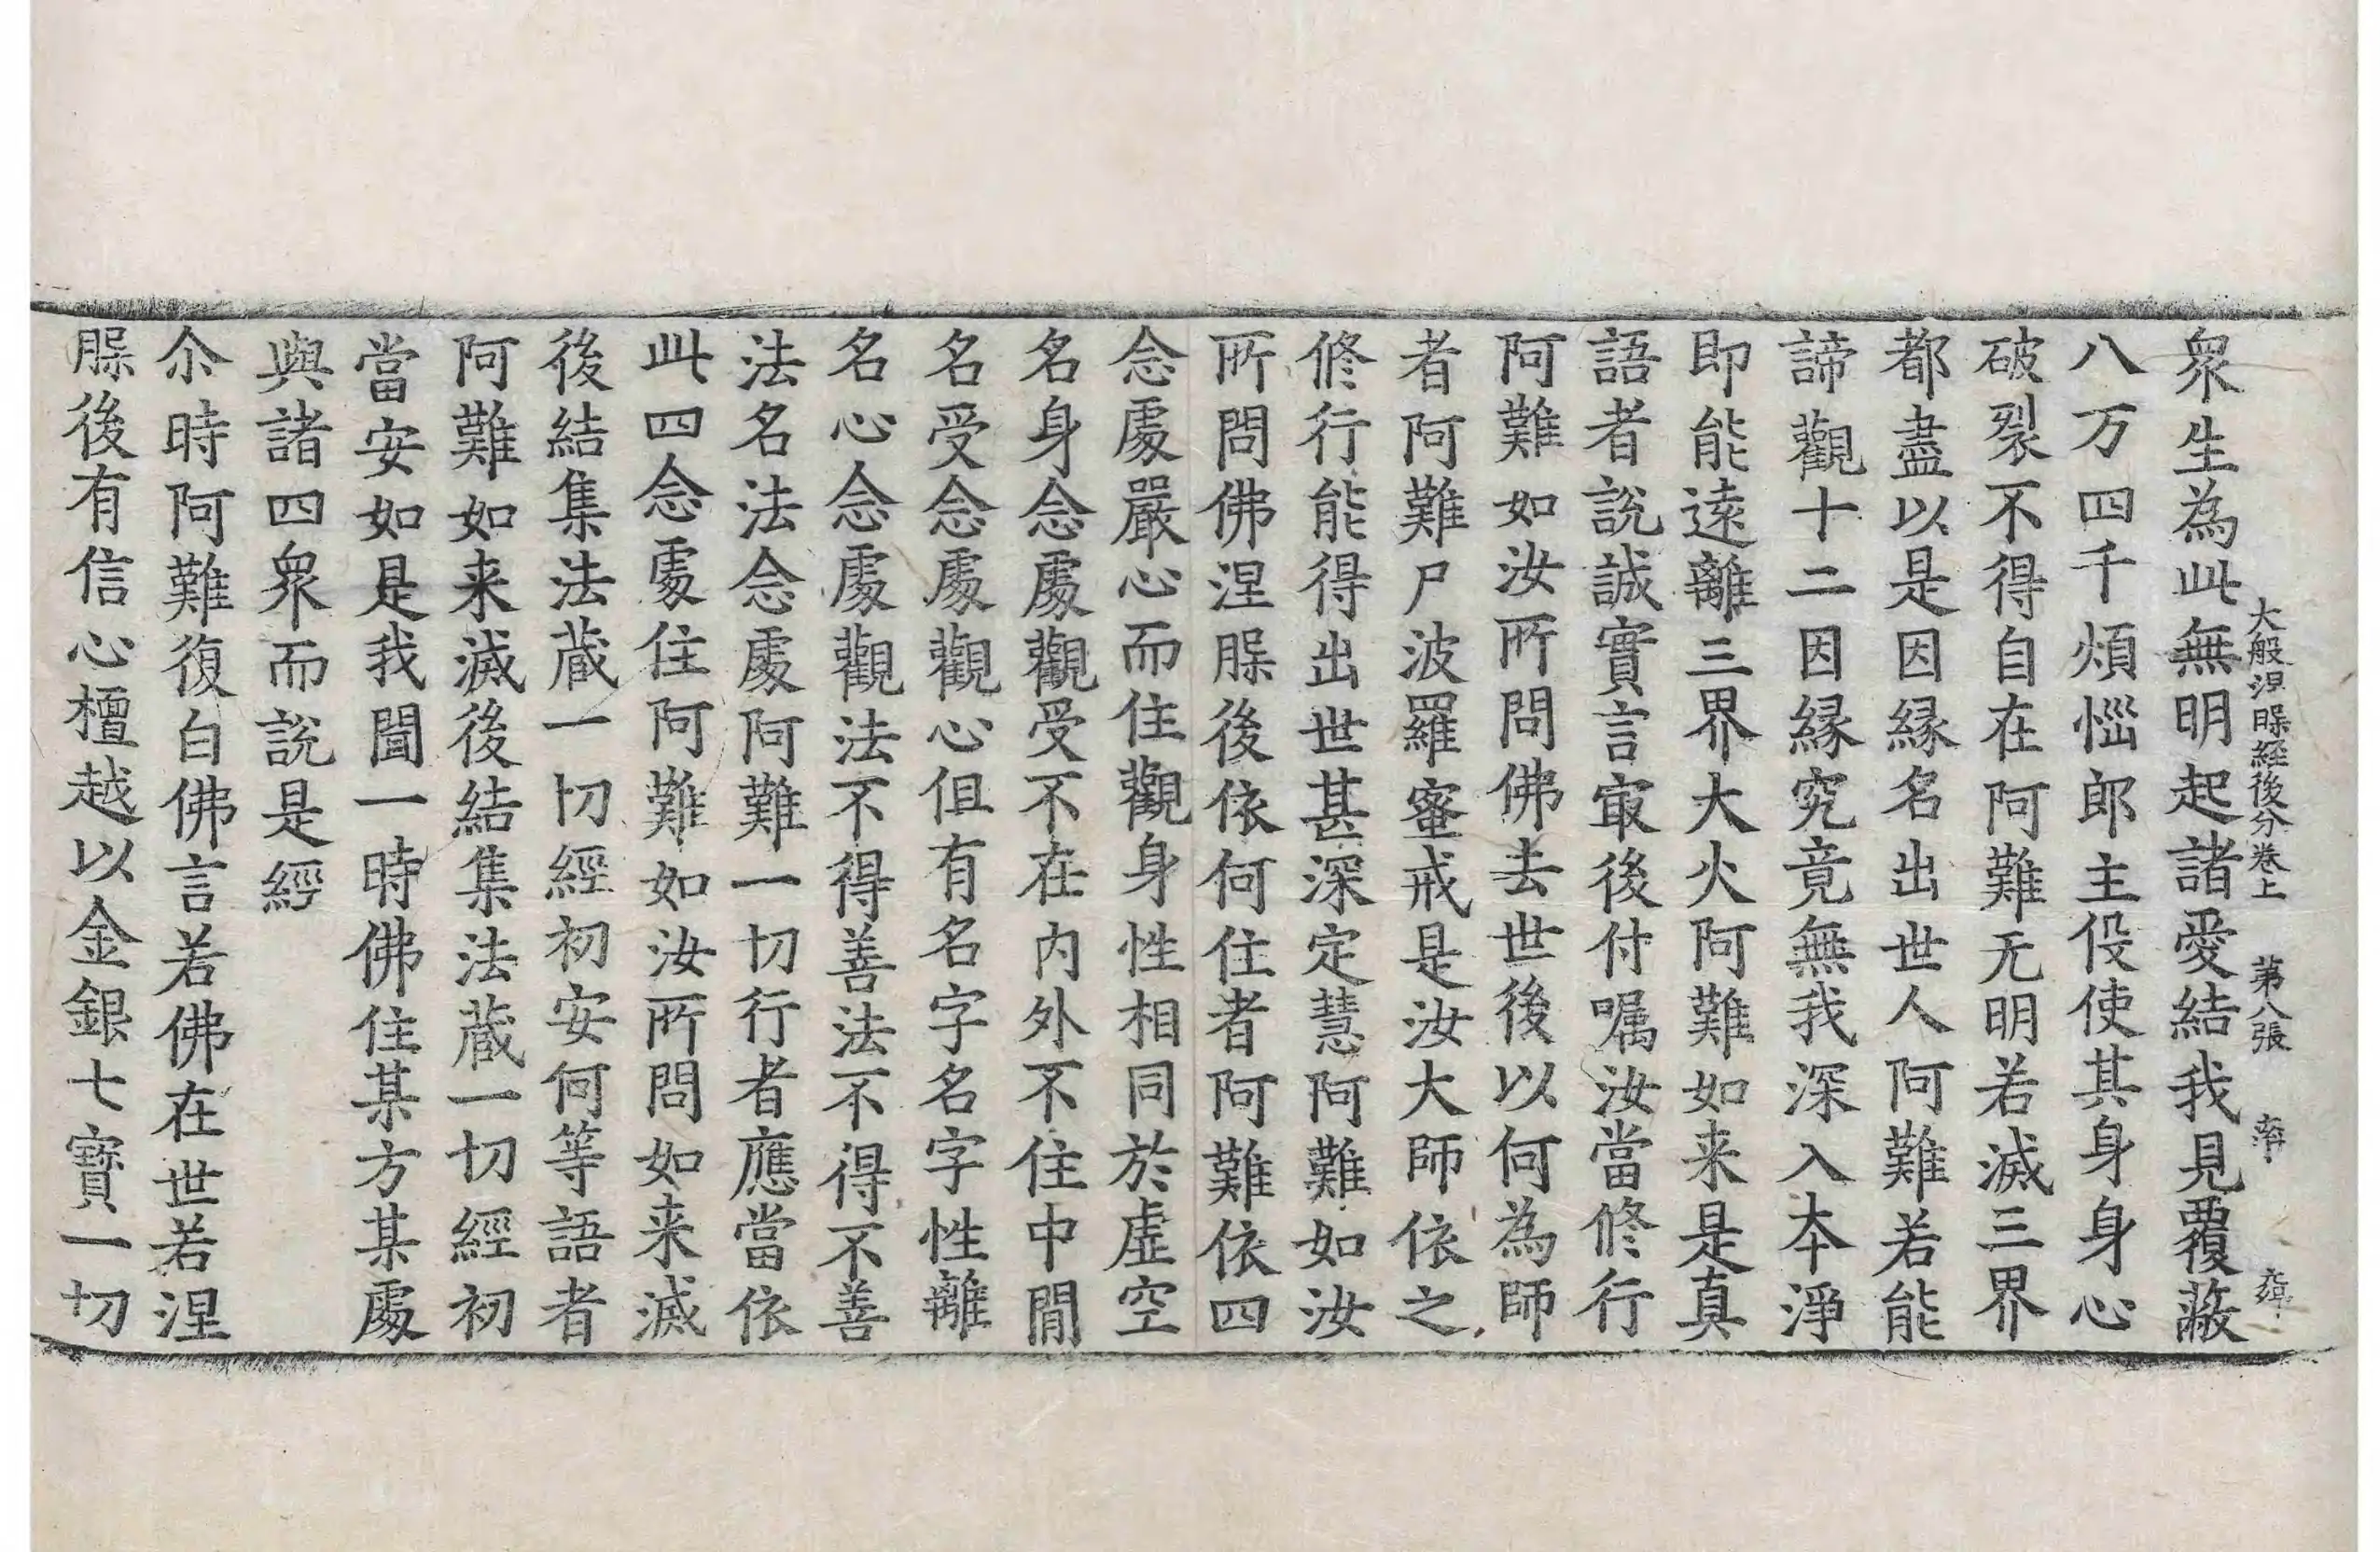 大般涅槃經後分卷上　第八張　率
衆生為此無明起諸愛結我見覆蔽
八万四千煩惱郎主伇使其身身心
破裂不得自在阿難无明若滅三界
都盡以是因緣名出世人阿難若能
諦觀十二因緣究竟無我深入本淨
即能遠離三界大火阿難如来是真
語者說誠實言㝡後付嘱汝當修行
阿難如汝所問佛去世後以何為師
者阿難尸波羅蜜戒是汝大師依之
修行能得出世甚深定慧阿難如汝
所問佛涅槃後依何住者阿難依四
念處嚴心而住觀身性相同於虛空
名身念處觀受不在內外不住中閒
名受念處觀心但有名字名字性離
名心念處觀法不得善法不得不善
法名法念處阿難一切行者應當依
此四念處住阿難如汝所問如来滅
後結集法蔵一切經初安何等語者
阿難如来滅後結集法蔵一切經初
當安如是我聞一時佛住某方某處
與諸四衆而說是經
尒時阿難復白佛言若佛在世若涅
槃後有信心檀越以金銀七寶一切